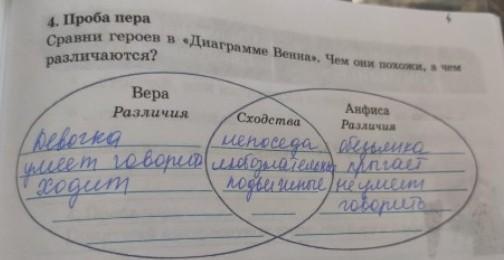 4. Проба пера
Сравни героев в «Диаграмме Венна». Чем они похожи, а чем
различаются?
Вера
Различия
Сходства
Анфиса
Различия
Девочка непоседа обезьянка
умеет говорить любознательны прыгает
ходит подвижные не умеет
говорить